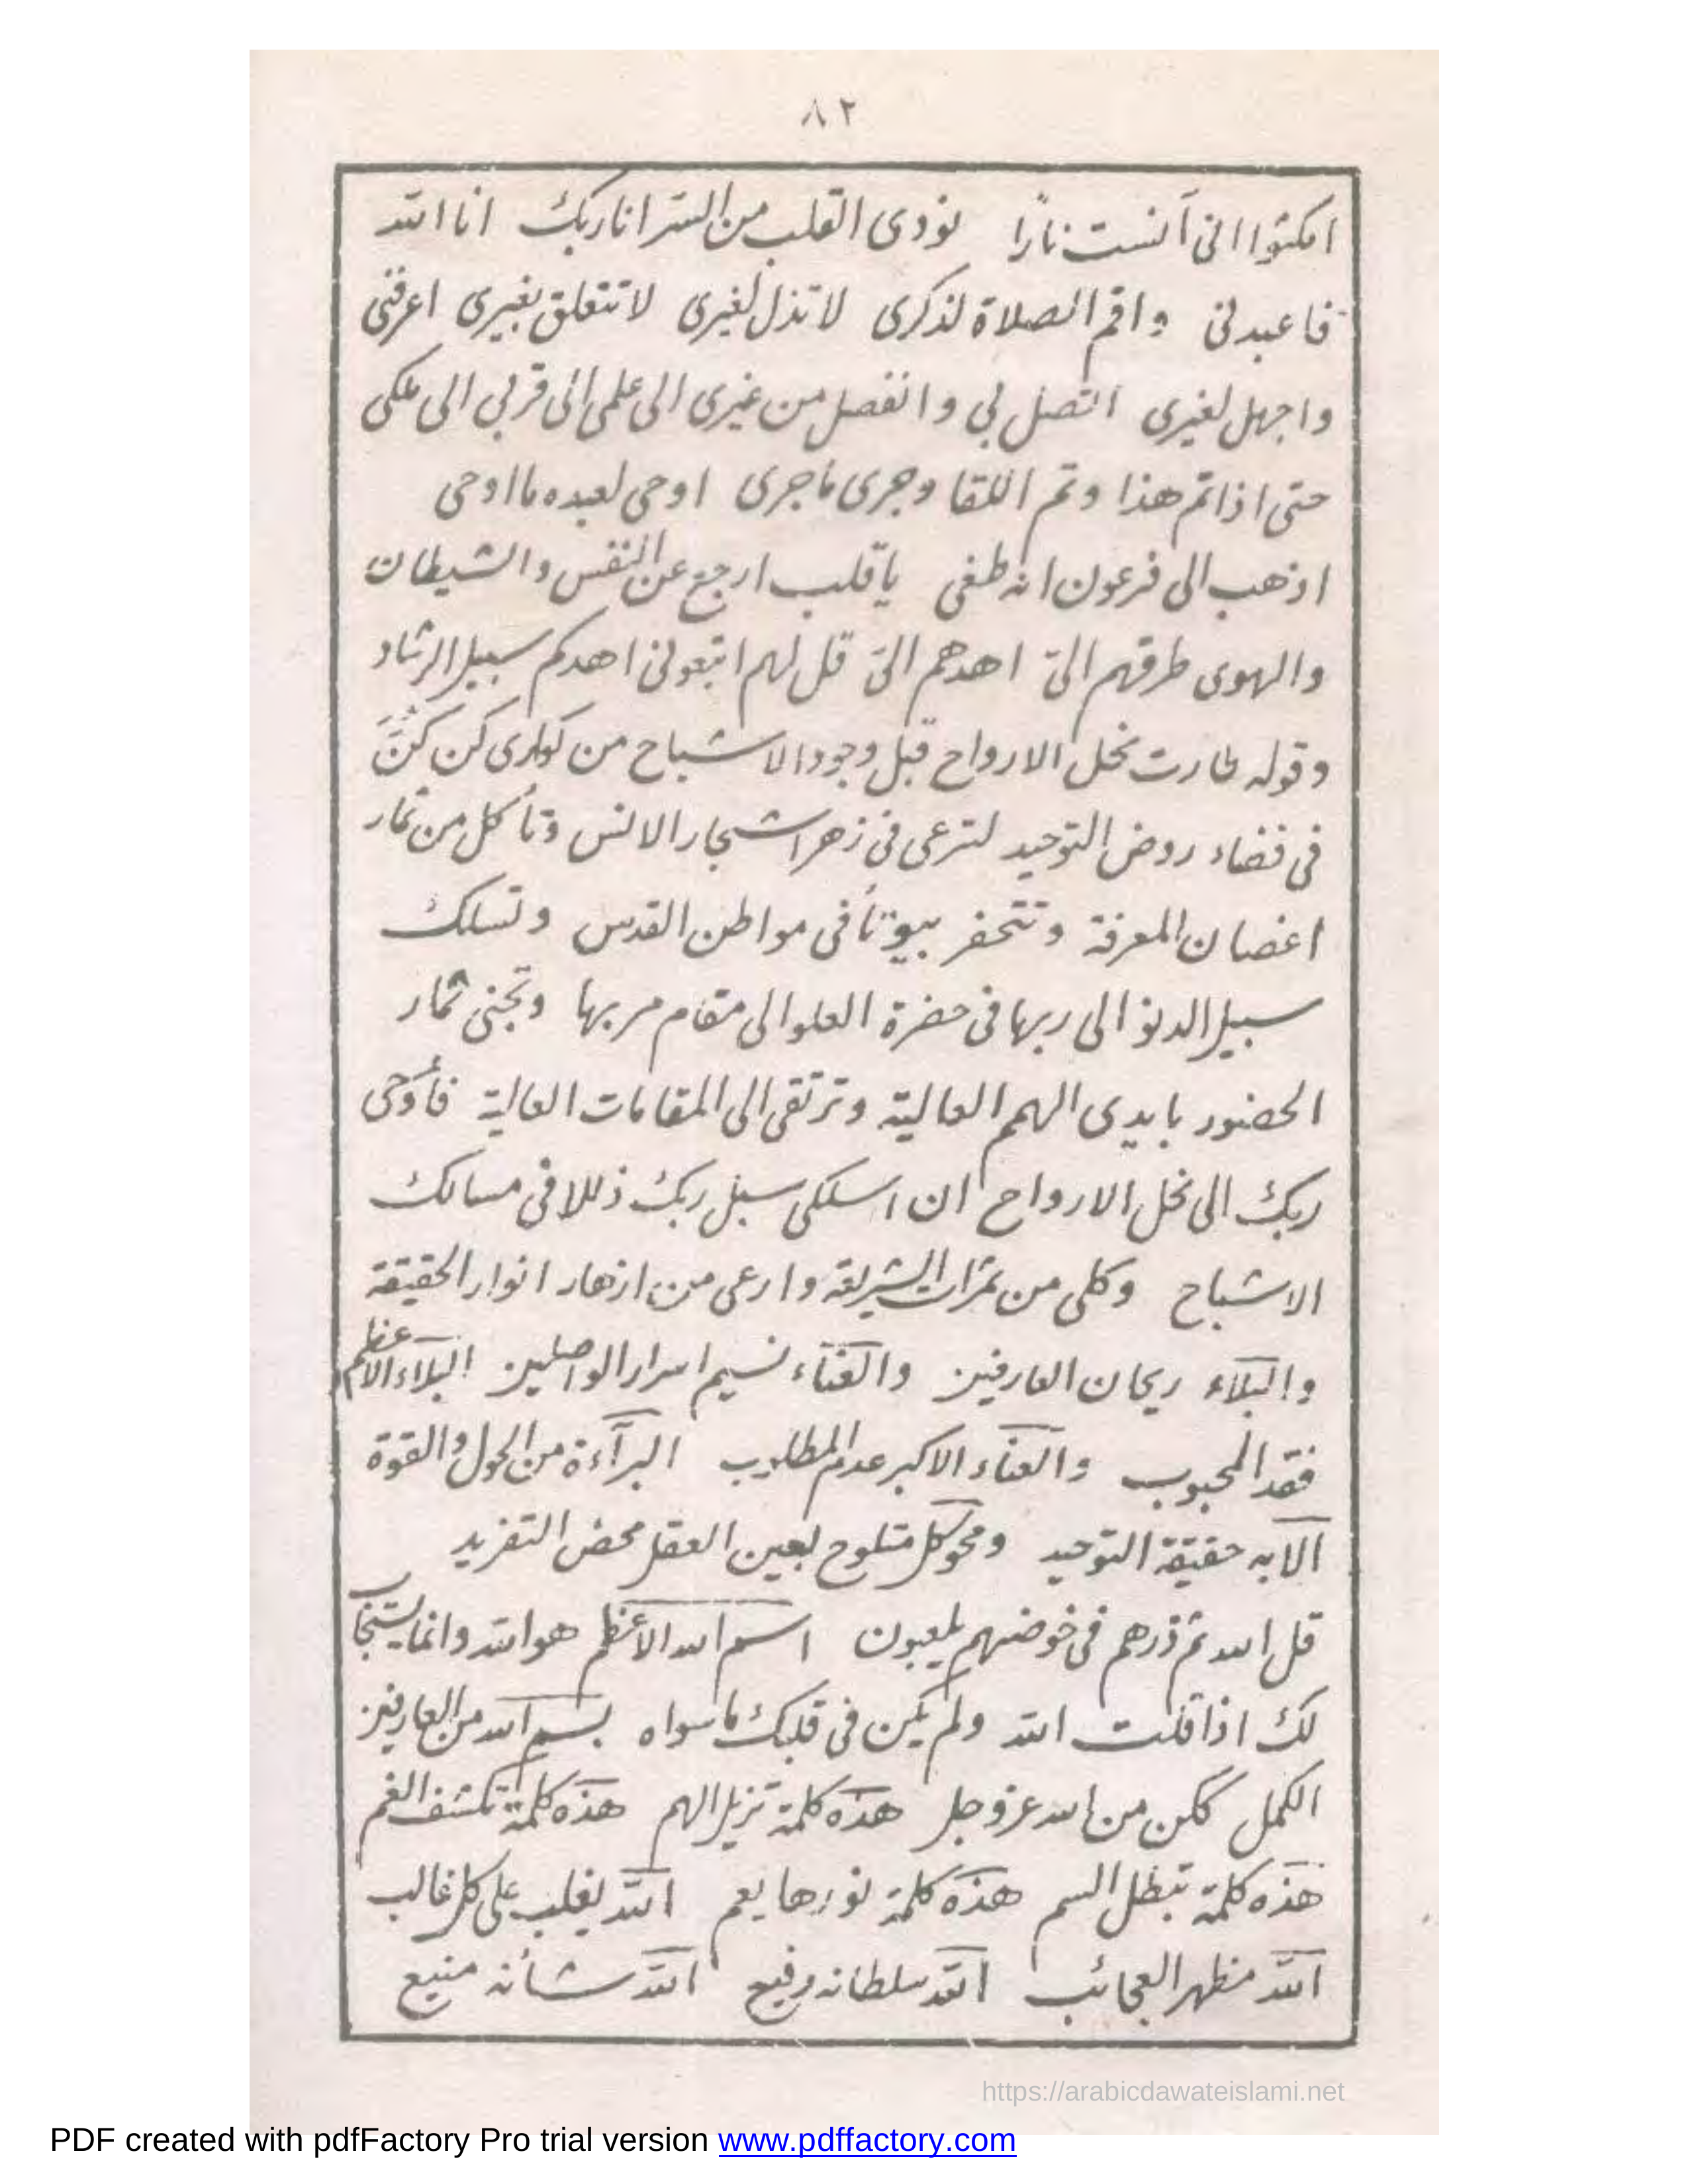 ٨٢
امكثوا انى آنست نارًا نودى القلب من السر انا ربك انا الله
فاعبدنى واقم الصلاة لذكرى لا تذل لغيرى لا تتعلق بغيرى اعرفنى
واجهل لغيرى اتصل بي وانفصل من غيرى الى علمى الى قربي الى ملكى
حتى اذا تم هذا وتم اللقا وجرى ماجرى اوحى لعبده ما اوحى
اذهب الى فرعون انه طغى يا قلب ارجع عن النفس والشيطان
والهوى طرقهم الىّ اهدهم الىّ قل لهم اتبعونى اهدكم سبيل الرشاد
وقوله طارت نحل الارواح قبل وجود الاشباح من كوارى كن
فى فضاء روض التوحيد لترعى فى زهر اشجار الانس وتأكل من ثمار
اغصان المعرفة وتتحفر بيوتا فى مواطن القدس وتسلك
سبيل الدنو الى ربها فى حضرة العلو الى مقام مربها وتجنى ثمار
الحضور بايدى الهمم العالية وترتقى الى المقامات العالية فأوحى
ربك الى نحل الارواح ان اسلكى سبل ربك ذللا فى مسالك
الاشباح وكلى من ثمرات الشريعة وارعى من ازهار انوار الحقيقة
والبلاء ريحان العارفين والفناء نسيم اسرار الواصلين البلاء الاعظم
فقد المحبوب والفناء الاكبر عدم المطلوب البرآءة من الحول والقوة
الا به حقيقة التوحيد ومحو كل متلوح بعين العقل محض التفريد
قل الله ثم ذرهم فى خوضهم يلعبون اسم الله الأعظم هو الله وانما يستجاب
لك اذا قلت الله ولم يكن فى قلبك ما سواه بسم الله من العارفين
الكمل ككن من الله عز وجل هذه كلمة تزيل الهم هذه كلمة تكشف الغم
هذه كلمة تبطل السم هذه كلمة نورها يعم الله يغلب على كل غالب
الله مظهر العجائب الله سلطانه رفيع الله شأنه منيع
https://arabicdawateislami.net
PDF created with pdfFactory Pro trial version www.pdffactory.com